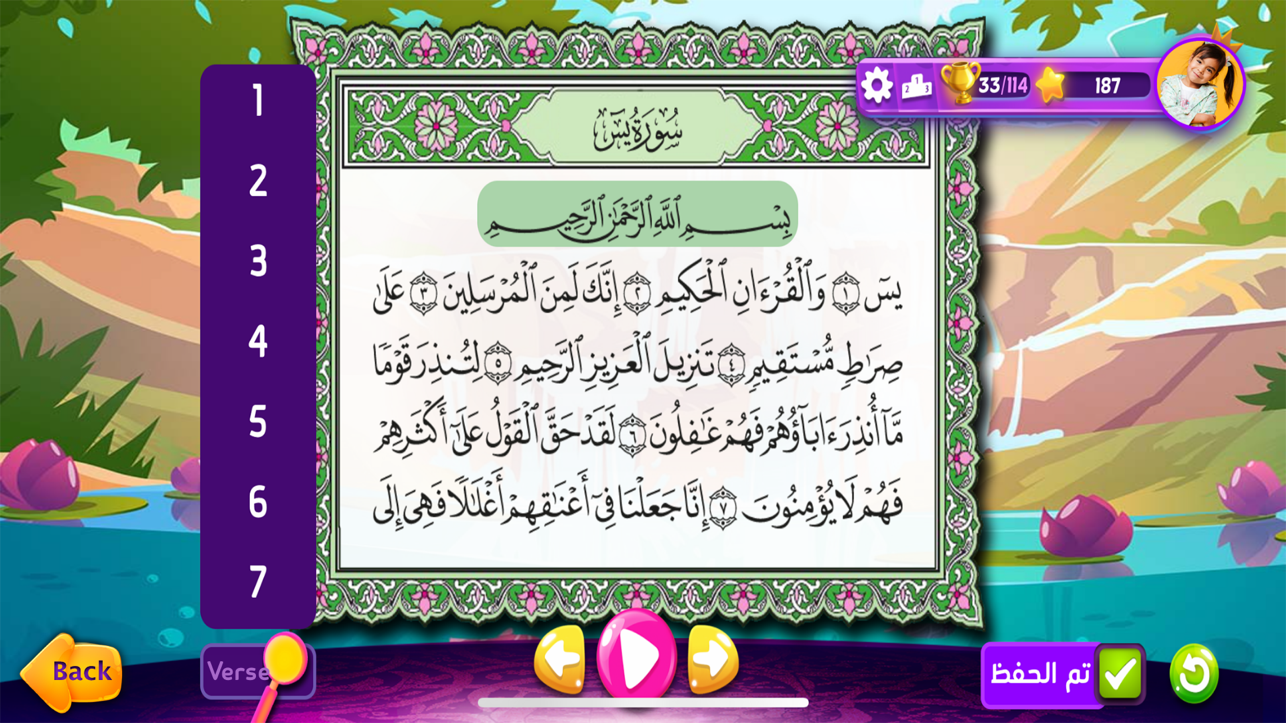 33/114
187
سُورَةُ يسٓ
بِسْمِ ٱللَّهِ ٱلرَّحْمَٰنِ ٱلرَّحِيمِ
يسٓ ١ وَٱلْقُرْءَانِ ٱلْحَكِيمِ ٢ إِنَّكَ لَمِنَ ٱلْمُرْسَلِينَ ٣ عَلَىٰ
صِرَٰطٍ مُّسْتَقِيمٍ ٤ تَنزِيلَ ٱلْعَزِيزِ ٱلرَّحِيمِ ٥ لِتُنذِرَ قَوْمًا
مَّآ أُنذِرَ ءَابَآؤُهُمْ فَهُمْ غَٰفِلُونَ ٦ لَقَدْ حَقَّ ٱلْقَوْلُ عَلَىٰٓ أَكْثَرِهِمْ
فَهُمْ لَا يُؤْمِنُونَ ٧ إِنَّا جَعَلْنَا فِىٓ أَعْنَٰقِهِمْ أَغْلَٰلًا فَهِىَ إِلَى
1
2
3
4
5
6
7
Back
Verse
تم الحفظ